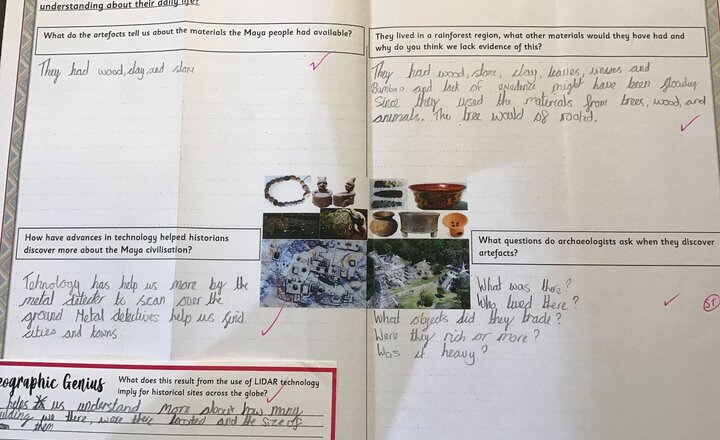 understanding about their daily life?
What do the artefacts tell us about the materials the Maya people had available?
They had wood, clay, and stone
They lived in a rainforest region, what other materials would they have had and
why do you think we lack evidence of this?
They had wood, stone, clay, leaves, and
Bamboo and lack of evidence might have been flooding
Since they used the materials from trees, wood, and
animals. The tree would of rooted.
How have advances in technology helped historians
discover more about the Maya civilisation?
Tehnology has help us more by the
metal to scan over the
ground Metal detectives help us find
cities and towns.
What questions do archaeologists ask when they discover
artefacts?
What was there?
Who lived there?
What objects did they trade?
Were they rich or more?
Was it heavy?
eographic Genius
What does this result from the use of LIDAR technology
imply for historical sites across the globe?
helps us understand more about how many
we there, were they and the size of
them